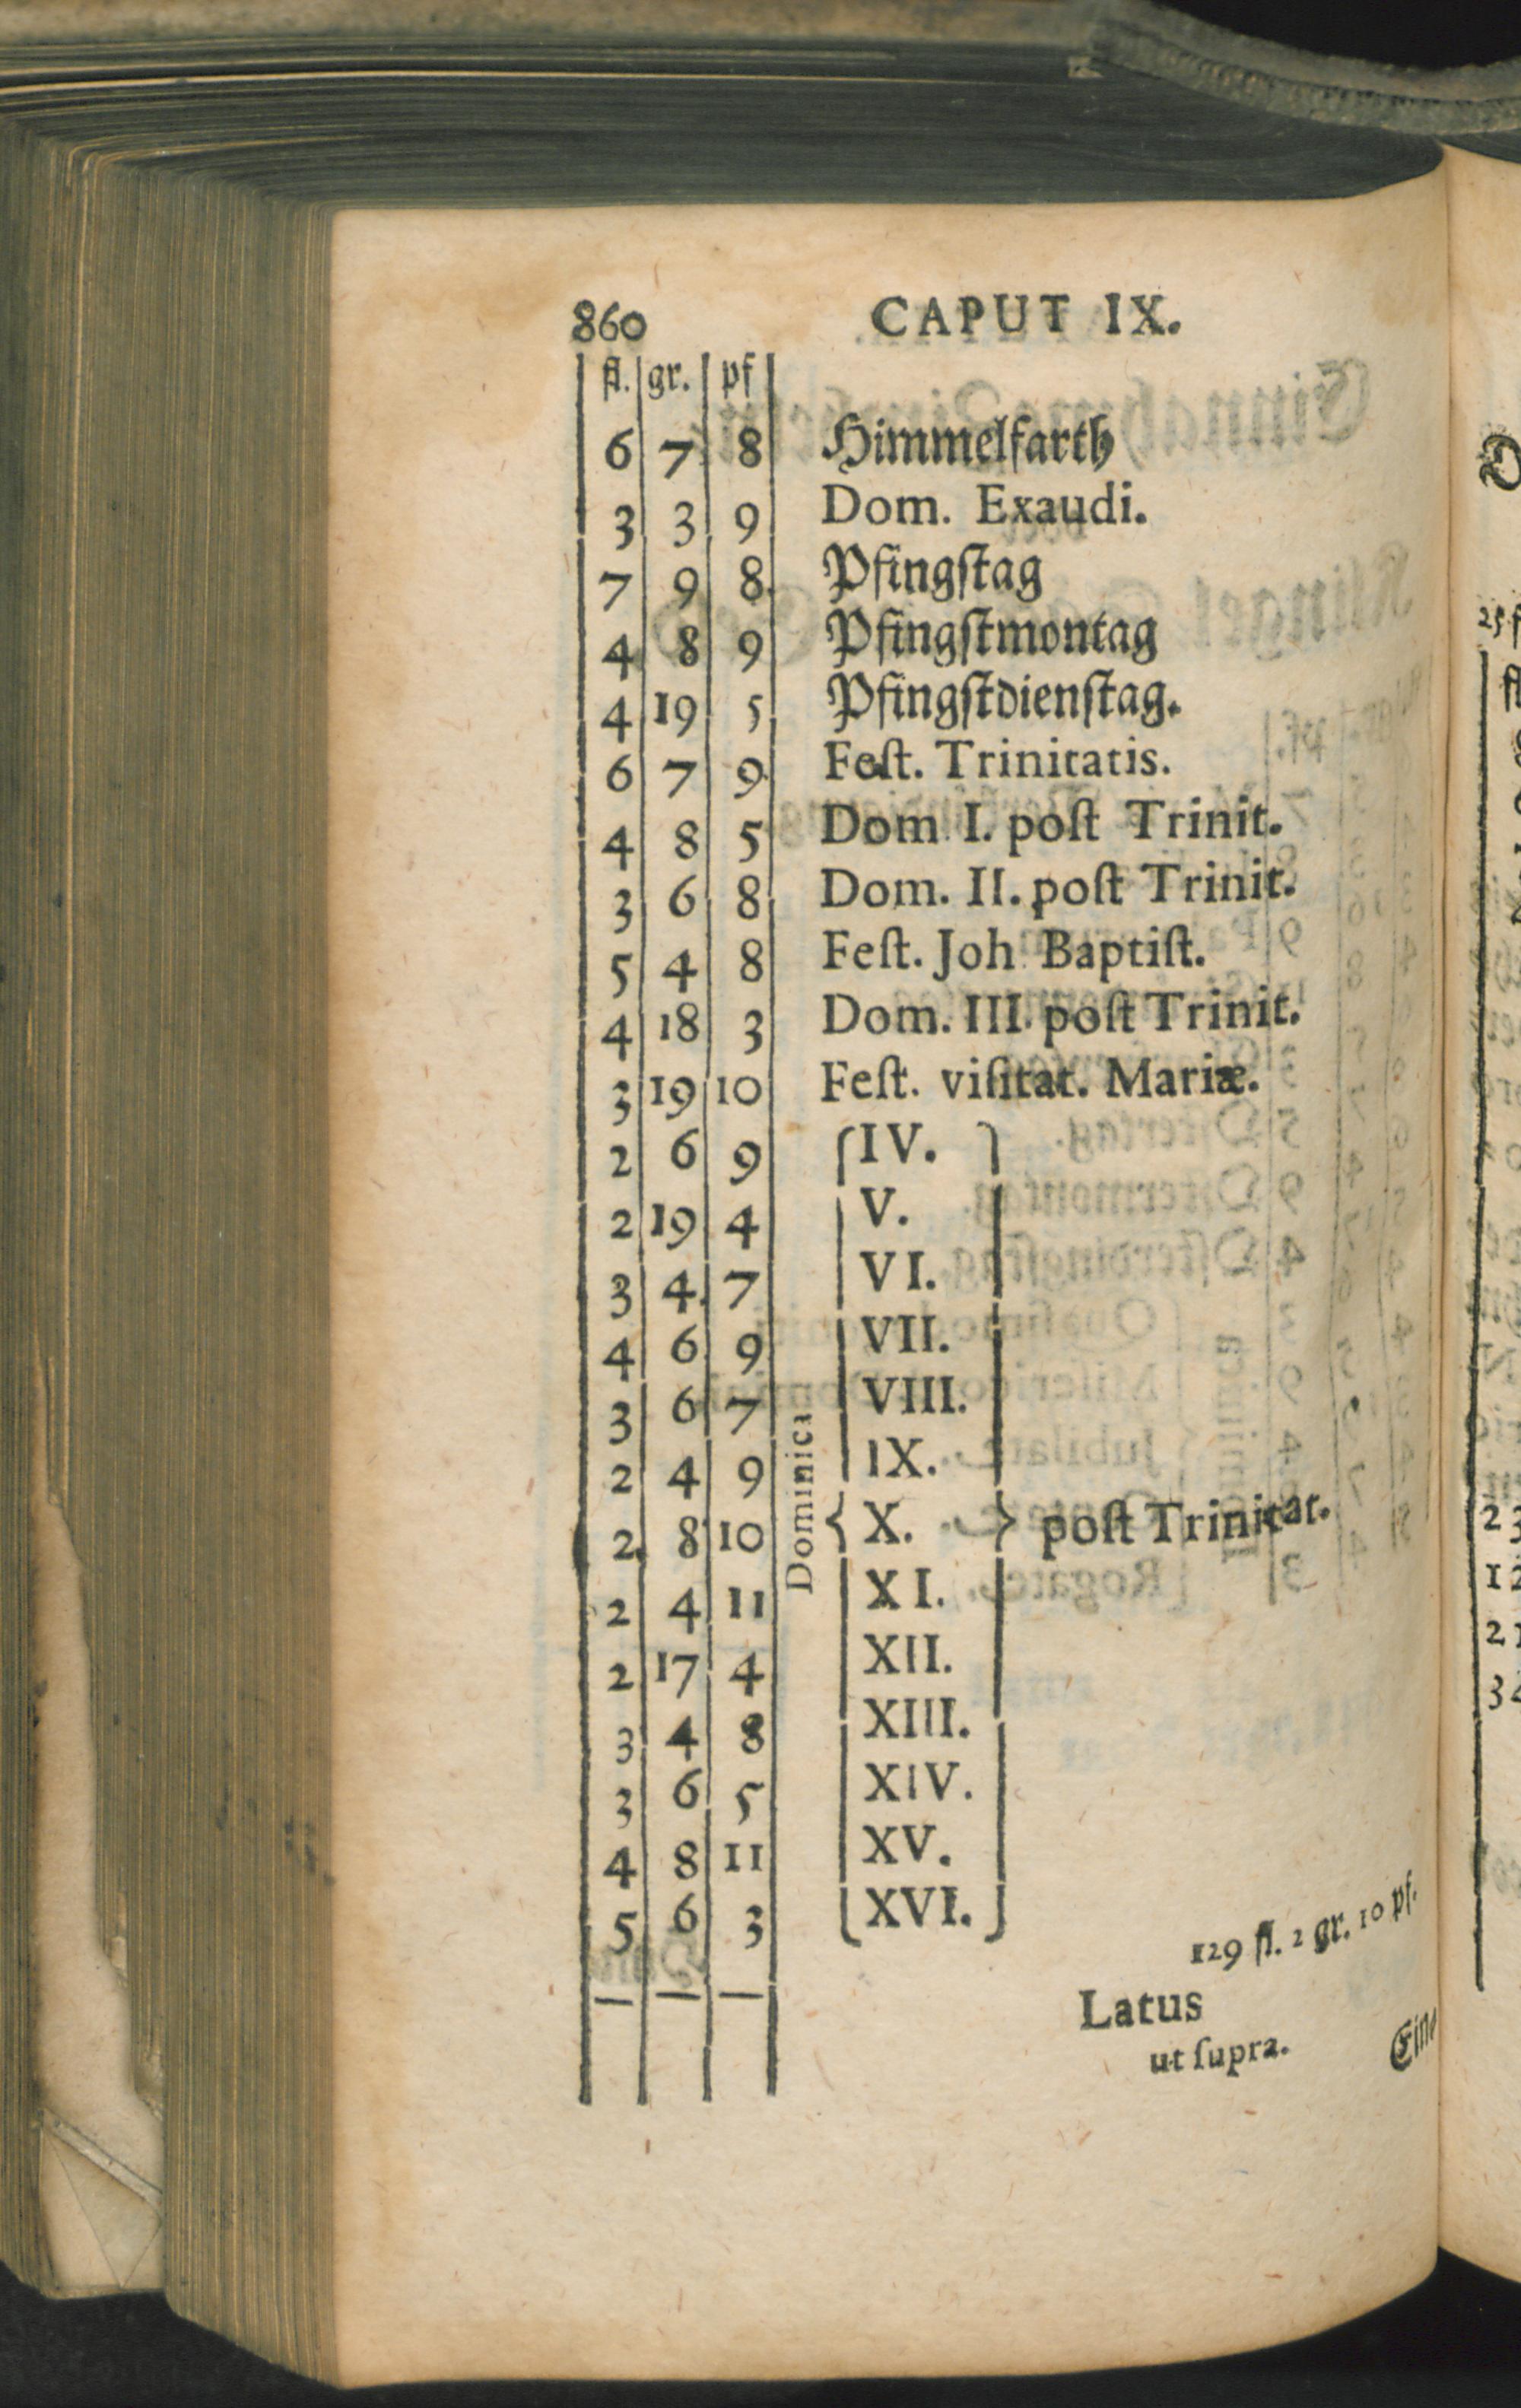 860 CAPUT IX.
fl. gr. pf
6 7 8 Himmelfarth
3 3 9 Dom. Exaudi.
7 9 8 Pfingſtag
4 8 9 Pfingſtmontag
4 19 5 Pfingſtdienſtag.
6 7 9 Feſt. Trinitatis.
4 8 5 Dom I. poſt Trinit.
3 6 8 Dom. II. poſt Trinit.
5 4 8 Feſt. Joh Baptiſt.
4 18 3 Dom. III. poſt Trinit.
3 19 10 Feſt. viſitat. Mariæ.
2 6 9 IV.
2 19 4 V.
3 4 7 VI.
4 6 9 VII.
3 6 7 VIII.
2 4 9 IX.
2 8 10 Dominica X. poſt Trinitat.
2 4 11 XI.
2 17 4 XII.
3 4 8 XIII.
3 6 5 XIV.
4 8 11 XV.
5 6 3 XVI.
129 fl. 2 gr. 10 pf.
Latus
ut ſupra.